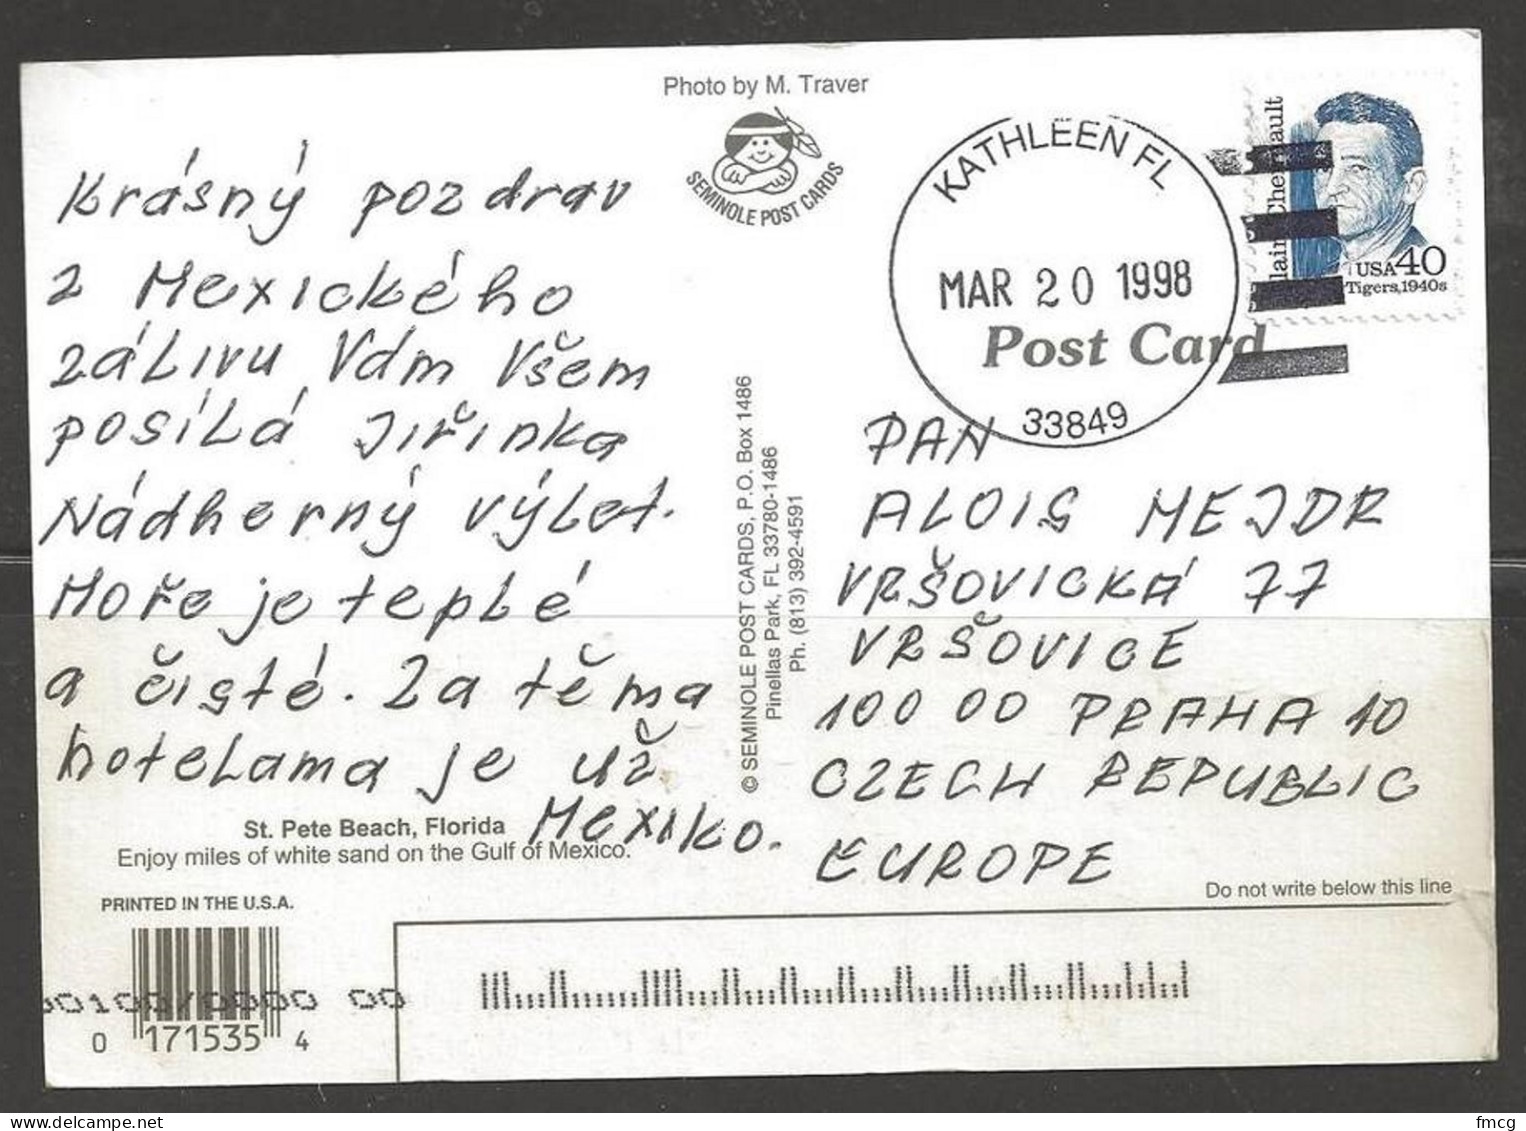 Photo by M. Traver
SEMINOLE POST CARDS
KATHLEEN FL
MAR 20 1998
33849
USA 40
Tigers, 1940s
Post Card
Krásný pozdrav
z Mexického
zálivu Vám Všem
posílá Jiřinka
Nádherný výlet.
Moře je teplé
a čisté. Za těma
hotelama je už
Mexiko.
St. Pete Beach, Florida
Enjoy miles of white sand on the Gulf of Mexico.
PRINTED IN THE U.S.A.
0 171535 4
© SEMINOLE POST CARDS, P.O. Box 1486
Pinellas Park, FL 33780-1486
Ph. (813) 392-4591
PAN
ALOIS MEJDR
VRŠOVICKÁ 77
VRŠOVICE
100 00 PRAHA 10
CZECH REPUBLIC
EUROPE
Do not write below this line
fmcg